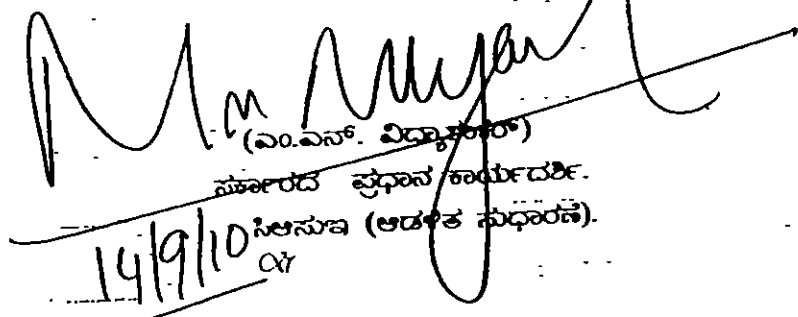 (ಎಂ.ಎನ್. ವಿದ್ಯಾಶಂಕರ್)
ಸರ್ಕಾರದ ಪ್ರಧಾನ ಕಾರ್ಯದರ್ಶಿ.
ಸಿಆಸುಇ (ಆಡಳಿತ ಸುಧಾರಣೆ).
14/9/10